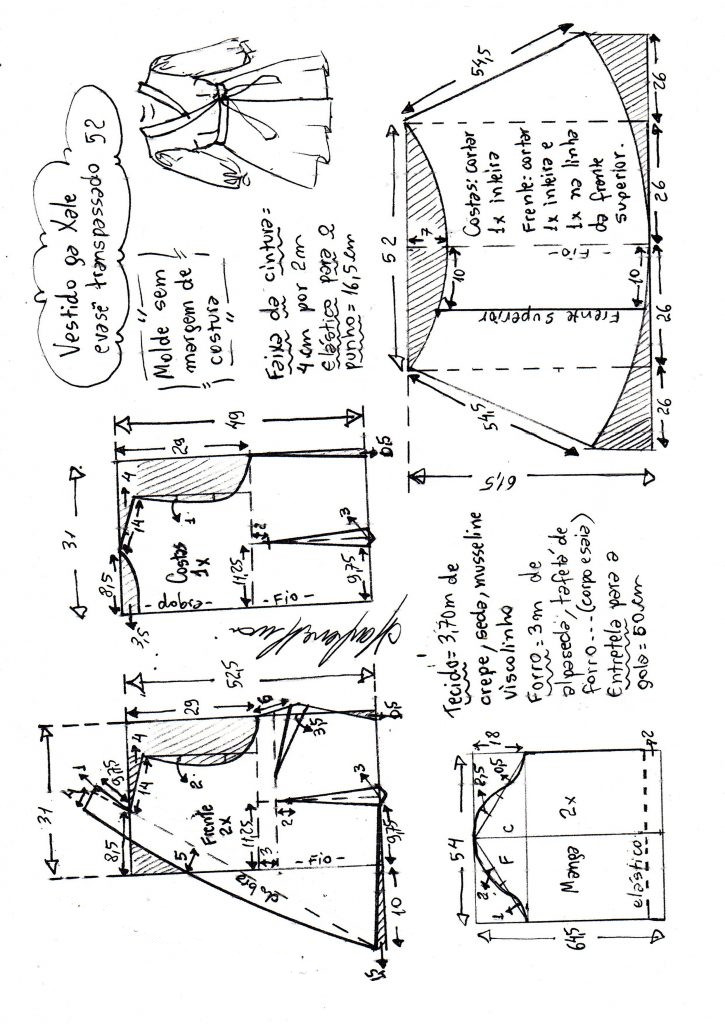 Vestido ga Xale
evasê transpassado 52
"Molde sem
margem de
costura"
Faixa da cintura =
4 cm por 2m
Elástico para o
punho = 16,5 cm
31
8,5
3,5
14
4
1
29
49
Costas
1x
dobra
- Fio -
11,25
2
9,75
3
0,5
31
8,5
4
1
9,75
14
4
2
29
52,5
5
Frente
2x
dobra
11,25
3
- Fio -
2
6
3,5
3
9,75
0,5
10
1,5
52
7
54,5
54,5
61,5
10
10
Frente Superior
- Fio -
Costas: cortar
1x inteira
Frente: cortar
1x inteira e
1x na linha
da frente
superior.
26
26
26
26
Tecido = 3,70m de
crepe, seda, musseline
viscolinho
Forro = 3m de
alpaseda, tafetá de
forro... (corpo e saia)
Entretela para a
gola = 50 cm
54
18
2
1
2,5
0,5
F
C
Manga
2x
elástico
2
64,5